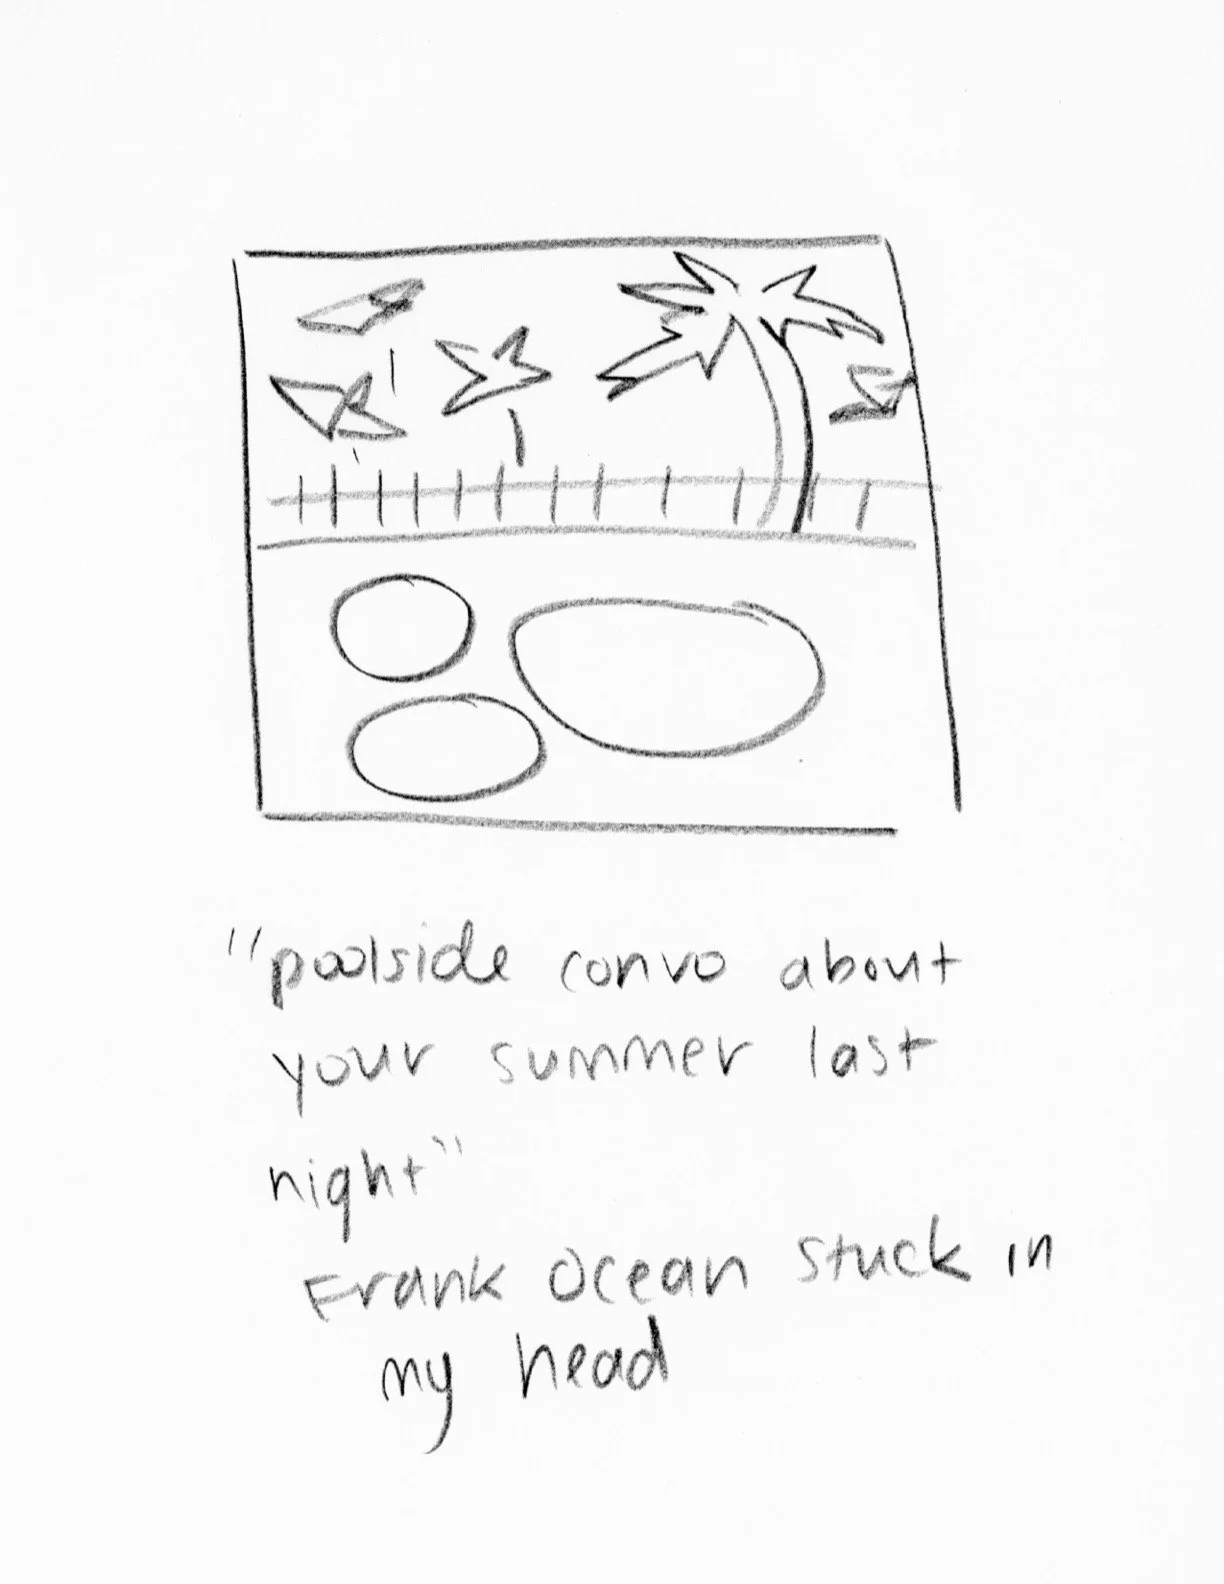 "poolside convo about
your summer last
night"
Frank Ocean stuck in
my head